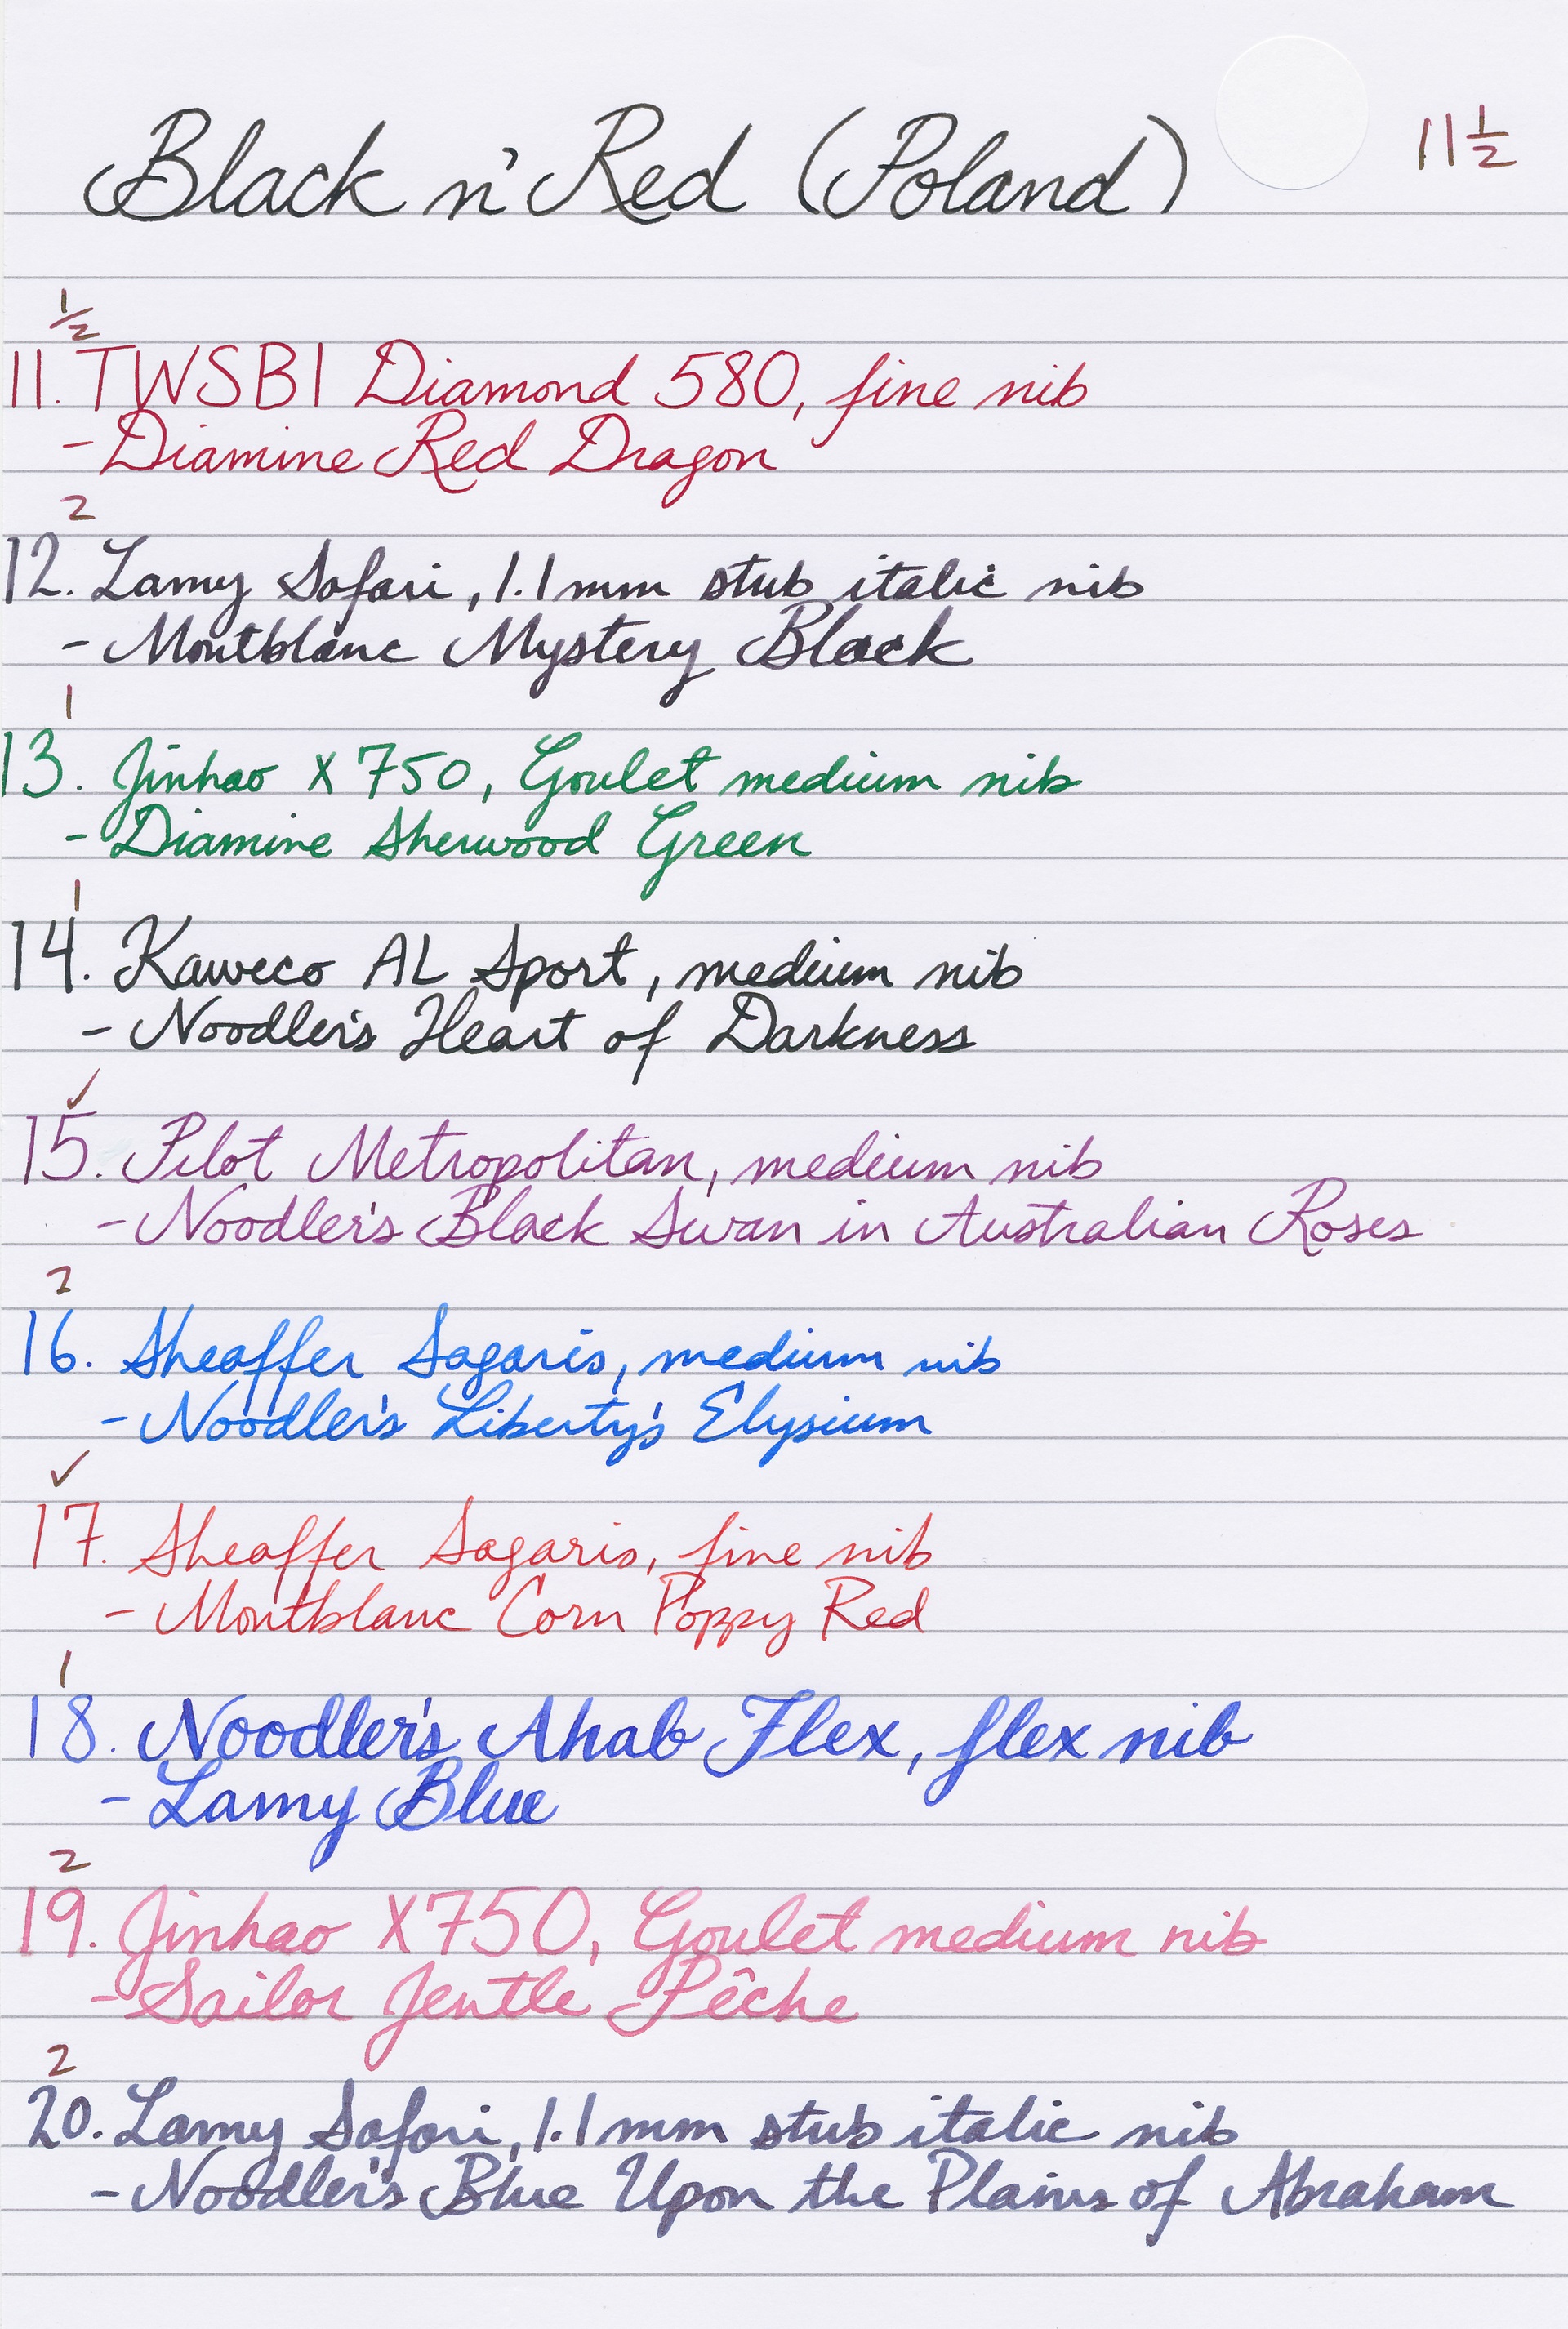 Black n' Red (Poland) 11 1/2
1/2
11. TWSBI Diamond 580, fine nib
- Diamine Red Dragon
2
12. Lamy Safari, 1.1mm stub italic nib
- Montblanc Mystery Black
1
13. Jinhao X750, Goulet medium nib
- Diamine Sherwood Green
1
14. Kaweco AL Sport, medium nib
- Noodler's Heart of Darkness
✓
15. Pilot Metropolitan, medium nib
- Noodler's Black Swan in Australian Roses
2
16. Sheaffer Sagaris, medium nib
- Noodler's Liberty's Elysium
✓
17. Sheaffer Sagaris, fine nib
- Montblanc Corn Poppy Red
1
18. Noodler's Ahab Flex, flex nib
- Lamy Blue
2
19. Jinhao X750, Goulet medium nib
- Sailor Jentle Pêche
2
20. Lamy Safari, 1.1mm stub italic nib
- Noodler's Blue Upon the Plains of Abraham